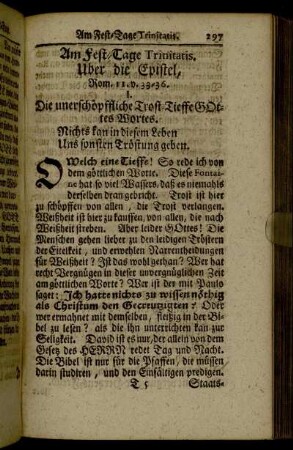 Am Fest-Tage Trinitatis. 297
Am Fest-Tage Trinitatis.
Uber die Epistel,
Rom. 11. v. 33-36.
I.
Die unerschöpffliche Trost-Tieffe GOt-
tes Wortes.
Nichts kan in diesem Leben
Uns sonsten Tröstung geben.
O Welch eine Tieffe! So rede ich von
dem göttlichen Worte. Diese Fontai-
ne hat so viel Wassers, daß es niemahls
derselben dran gebricht. Trost ist hier
zu schöpffen von allen, die Trost verlangen.
Weisheit ist hier zu kauffen, von allen, die nach
Weisheit streben. Aber leider GOttes! Die
Menschen gehen lieber zu den leidigen Tröstern
der Eitelkeit, und erwehlen Narrentheidungen
für Weisheit? Ist das wohl gethan? Wer hat
recht Vergnügen in dieser unvergnüglichen Zeit
am göttlichen Worte? Wer ist der mit Paulo
saget: Ich hatte nichts zu wissen nöthig
als Christum den Gecreutzigten? Oder
wer ermahnet mit demselben, fleißig in der Bi-
bel zu lesen? als die ihn unterrichten kan zur
Seligkeit. David ist es nur, der allein von dem
Gesetz des HERRN redet Tag und Nacht.
Die Bibel ist nur für die Pfaffen, die müssen
darin studiren, und den Einfältigen predigen.
T 5 Staats-